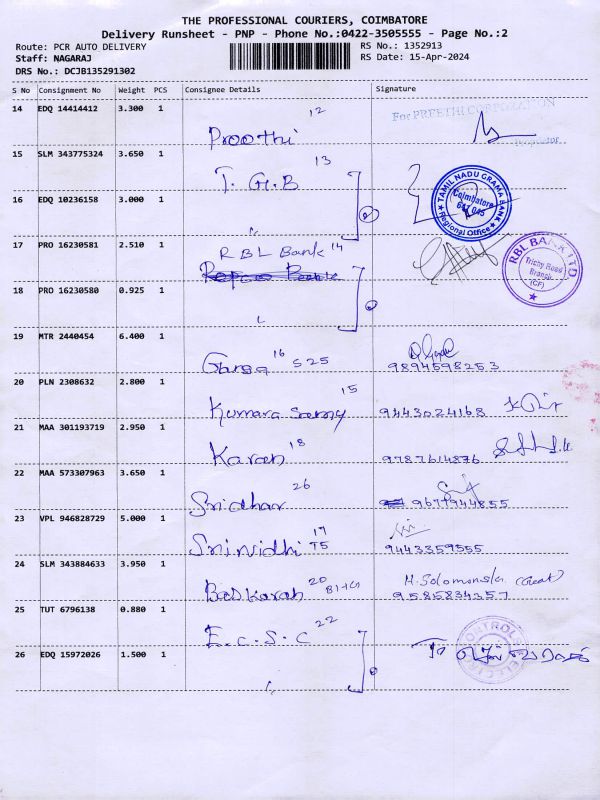 THE PROFESSIONAL COURIERS, COIMBATORE
Delivery Runsheet - PNP - Phone No.:0422-3505555 - Page No.:2
Route: PCR AUTO DELIVERY RS No.: 1352913
Staff: NAGARAJ RS Date: 15-Apr-2024
DRS No.: DCJB135291302
S No Consignment No Weight PCS Consignee Details Signature
14 EDQ 14414412 3.300 1
12
For PREETHI CORPORATION
Proothi
Proprietor
15 SLM 343775324 3.650 1
13
T. G.B
TAMIL NADU GRAMA BANK
Coimbatore
641 045
Regional Office
16 EDQ 10236158 3.000 1
17 PRO 16230581 2.510 1
RBL Bank 14
RBL BANK LTD
Trichy Road
Branch
(CF)
18 PRO 16230580 0.925 1
19 MTR 2440454 6.400 1
16
Ganga S 25
9894598253
20 PLN 2308632 2.800 1
15
Kumara Samy 9443024168
21 MAA 301193719 2.950 1
18
Karan 9787614876
22 MAA 573307963 3.650 1
26
Sridhar 9677944855
23 VPL 946828729 5.000 1
17
Srinidhi T5 9443359555
24 SLM 343884633 3.950 1
20
Baskaran 9585834357
25 TUT 6796138 0.880 1
22
E.C.S.C
26 EDQ 15972026 1.500 1